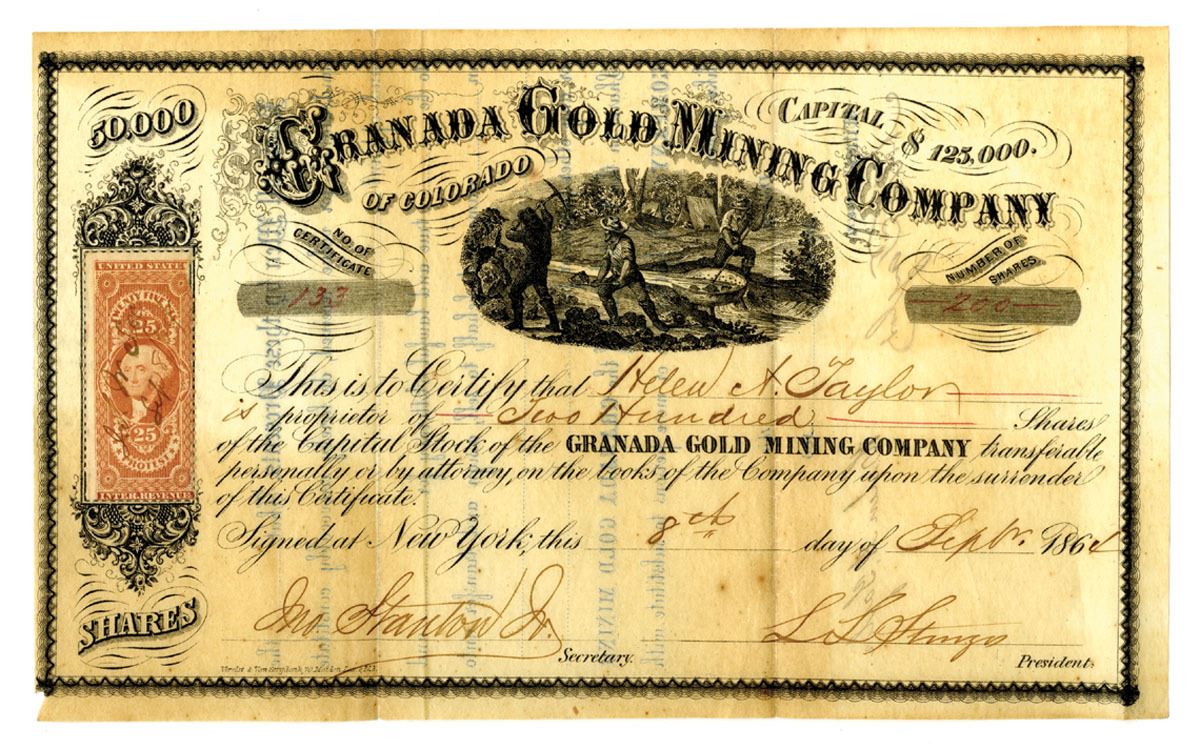 50,000
GRANADA GOLD MINING COMPANY
OF COLORADO
CAPITAL $ 125,000.
NO. OF CERTIFICATE
133
NUMBER OF SHARES.
200
UNITED STATES
TWENTY FIVE CENTS
25
25
PROTEST
INTER. REVENUE
This is to Certify that Helen A. Taylor
is proprietor of Two Hundred Shares
of the Capital Stock of the GRANADA GOLD MINING COMPANY transferable
personally or by attorney, on the books of the Company upon the surrender
of this Certificate.
Signed at New York, this 8th day of Sept. 1864
SHARES
Jno Stanton Jr.
Secretary.
President.